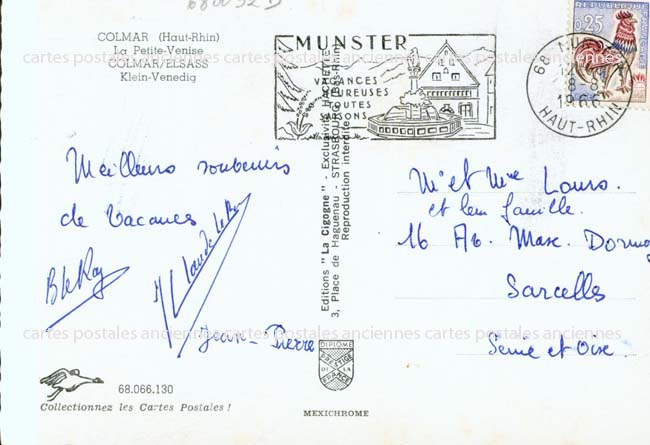 68.0092 D
COLMAR (Haut-Rhin)
La Petite-Venise
COLMAR/ELSASS
Klein-Venedig
MUNSTER
VACANCES
HEUREUSES
TOUTES
SAISONS
68 MUNSTER
8-8
1966
HAUT-RHIN
REPUBLIQUE FRANCAISE
0,25
cartes postales anciennes cartes postales anciennes
Meilleurs souvenirs
de Vacances
B LeRoy
Jean-Pierre
Editions "La Cigogne" - Exclusivité HACHETTE
3, Place de Haguenau - STRASBOURG (Bas-Rhin)
Reproduction interdite
Mr et Mme Louro.
et leur famille.
16 Av. Marx Dormoy
Sarcelles
Seine et Oise
cartes postales anciennes cartes postales anciennes
DIPLOME
PRESTIGE
DE LA
FRANCE
68.066.130
Collectionnez les Cartes Postales !
MEXICHROME